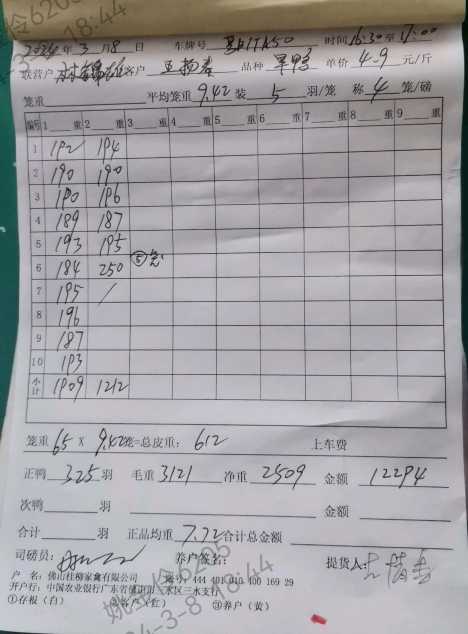 2024年3月8日 车牌号 时间16:30至17:00
联营户 客户 品种 单价4.9元/斤
笼重 平均笼重9.42 装5羽/笼 称4笼/磅
编号 1 重 2 重 3 重 4 重 5 重 6 重 7 重 8 重 9 重
1 192 194
2 190 190
3 190 196
4 189 187
5 193 195
6 184 250 ⑤
7 195 /
8 196
9 187
10 193
小计 1909 1212
笼重65×9.42笼=总皮重:612 上车费
正鸭325羽 毛重3121 净重2509 金额12294
次鸭 羽 金额
合计 羽 正品均重7.72 合计总金额
司磅员: 养户签名: 提货人:
户 名:佛山桂柳家禽有限公司 444 401 010 400 169 29
开户行:中国农业银行广东省佛山市三水区三水支行
①存根(白) ②客户(红) ③养户(黄)